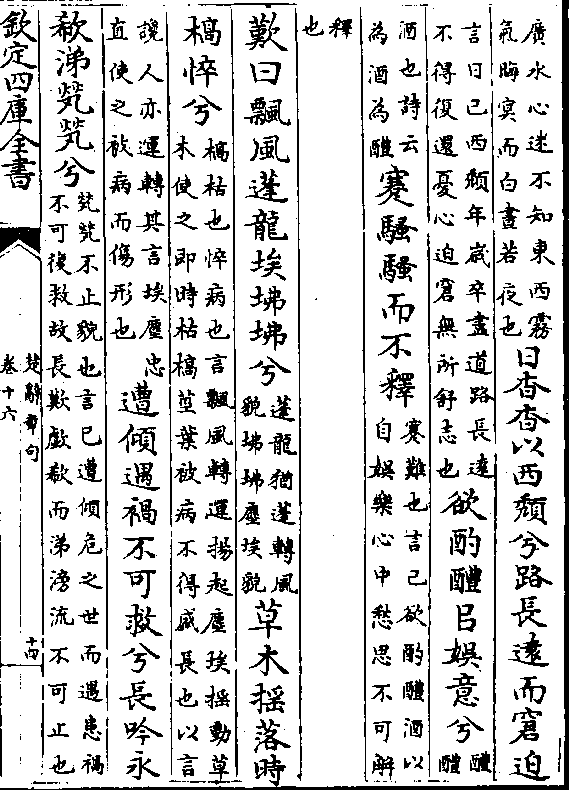 廣水心迷不知東西霧
氣晦㝠而白晝若夜也
日杳杳以西頽兮路長逺而窘迫
言日已西頽年歲卒盡道路長逺
不得復還憂心迫窘無所舒志也
欲酌醴㠯娱意兮
醴
醴
酒也詩云
為酒為醴
蹇騷騷而不釋
蹇難也言已欲酌醴酒以
自娱樂心中愁思不可解
釋
也
歎曰飄風蓬龍埃坲坲兮
蓬龍猶蓬轉風
貌坲坲塵埃貌
草木揺落時
槁悴兮
槁枯也悴病也言飄風轉運揚起塵埃揺動草
木使之即時枯槁莖葉被病不得盛長也以言
讒人亦運轉其言埃塵忠
直使之被病而傷形也
遭傾遇禍不可救兮長吟永
欷涕㷀㷀兮
㷀㷀不止貌也言已遭傾危之世而遇患禍
不可復救故長歎歔欷而涕滂流不可止也
欽定四庫全書
楚辭章句
卷十六
十四